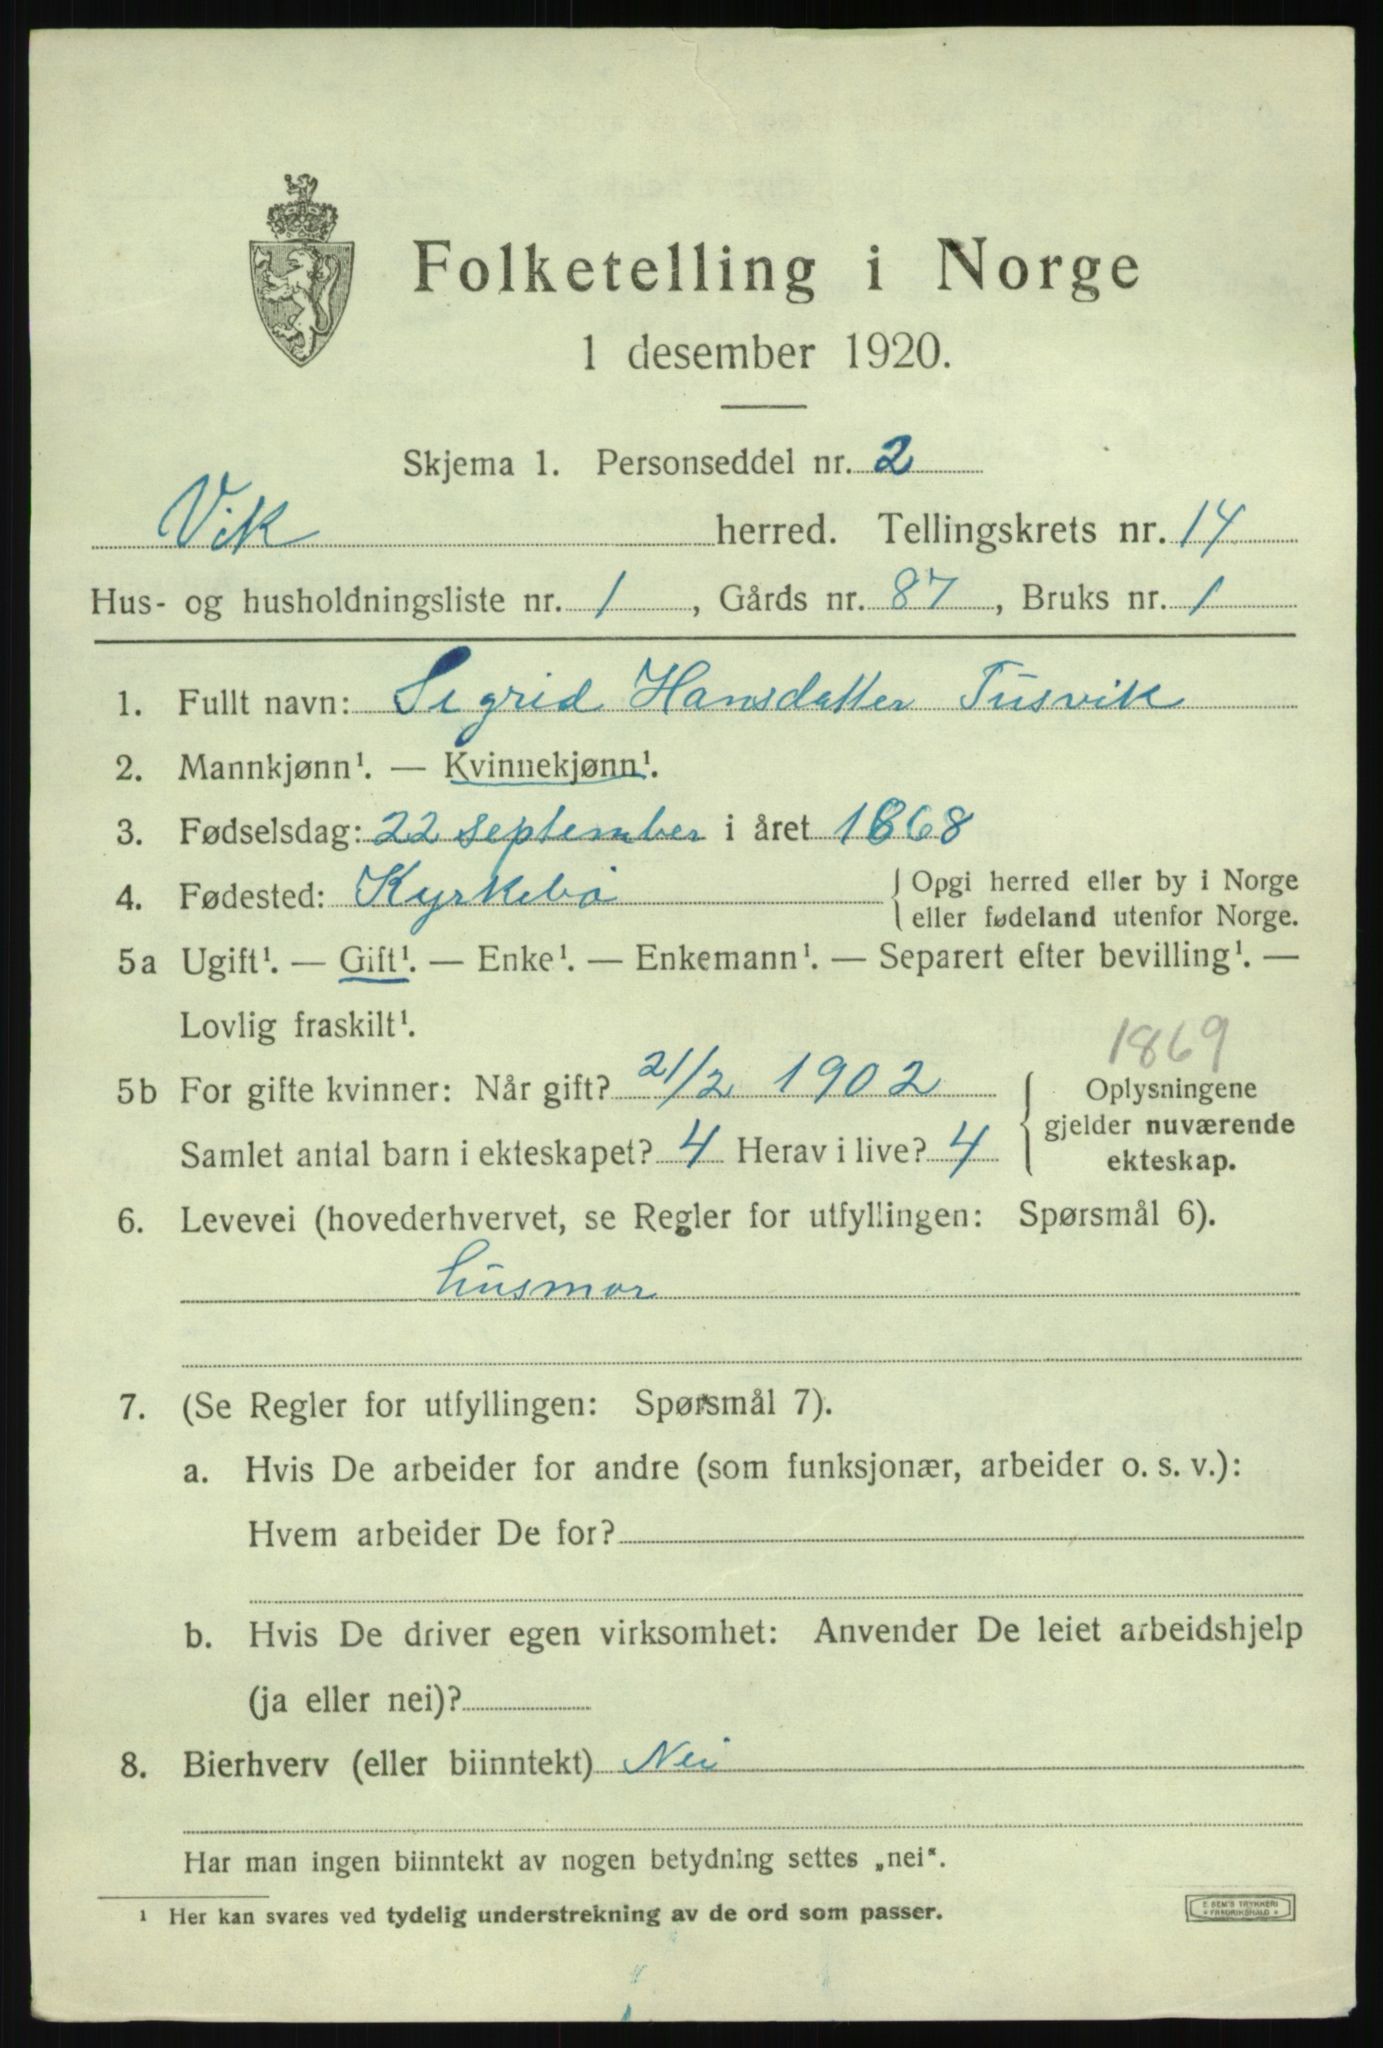 Folketelling i Norge
1 desember 1920.
Skjema 1. Personseddel nr. 2
Vik herred. Tellingskrets nr. 14
Hus- og husholdningsliste nr. 1, Gårds nr. 87, Bruks nr. 1
1. Fullt navn: Sigrid Hansdatter Tusvik
2. Mannkjønn¹. — Kvinnekjønn¹.
3. Fødselsdag: 22 september i året 1868
4. Fødested: Kyrkebø { Opgi herred eller by i Norge
eller fødeland utenfor Norge.
5a Ugift¹. — Gift¹. — Enke¹. — Enkemann¹. — Separert efter bevilling¹. —
Lovlig fraskilt¹.
1869
5b For gifte kvinner: Når gift? 21/2 1902 { Oplysningene
gjelder nuværende
Samlet antal barn i ekteskapet? 4 Herav i live? 4
ekteskap.
6. Levevei (hovederhvervet, se Regler for utfyllingen: Spørsmål 6).
husmor
7. (Se Regler for utfyllingen: Spørsmål 7).
a. Hvis De arbeider for andre (som funksjonær, arbeider o. s. v.):
Hvem arbeider De for?
b. Hvis De driver egen virksomhet: Anvender De leiet arbeidshjelp
(ja eller nei)?
8. Bierhverv (eller biinntekt) Nei
Har man ingen biinntekt av nogen betydning settes „nei“.
¹ Her kan svares ved tydelig understrekning av de ord som passer.
E SEM'S TRYKKERI
FREDRIKSHALD